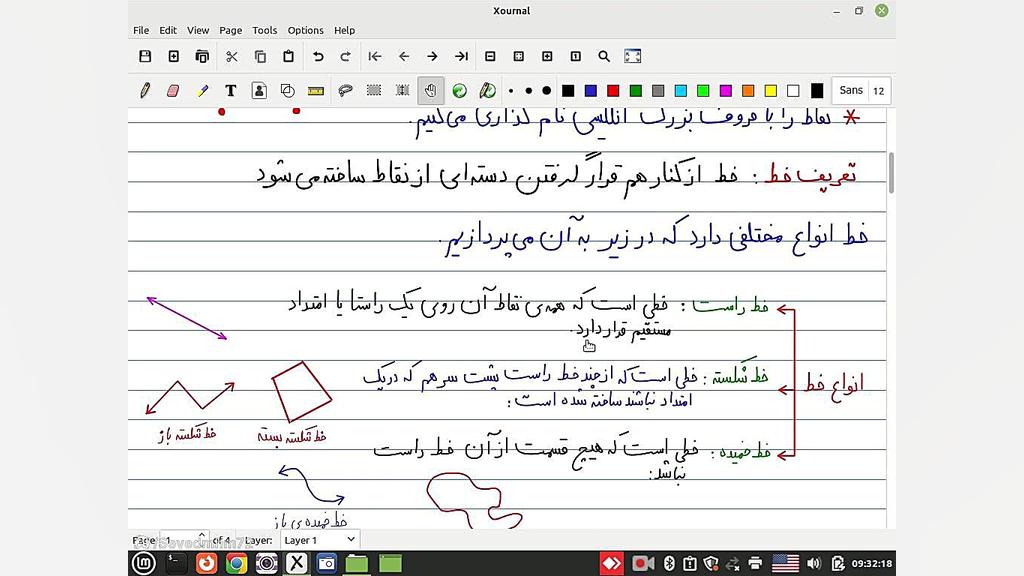 Xournal
File Edit View Page Tools Options Help
Sans 12
* نقاط را با حروف بزرگ انگلیسی نام گذاری می‌کنیم.
تعریف خط : خط از کنار هم قرار گرفتن دسته‌ای از نقاط ساخته می‌شود
خط انواع مختلفی دارد که در زیر به آن می‌پردازیم.
انواع خط
خط راست : خطی است که همه‌ی نقاط آن روی یک راستا یا امتداد
مستقیم قرار دارد.
خط شکسته : خطی است که از چند خط راست پشت سر هم که در یک
امتداد نباشند ساخته شده است :
خط شکسته بسته
خط شکسته باز
خط خمیده : خطی است که هیچ قسمت از آن خط راست
نباشد:
خط خمیده‌ی باز
Page of 4 Layer: Layer 1
09:32:18